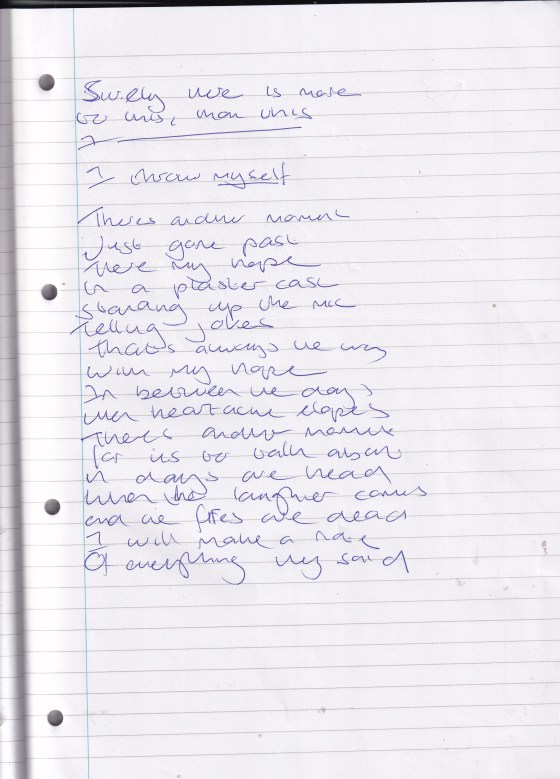 Surely there is more
to this, than this
I
I throw myself
Theres another moment
Just gone past
There my hope
in a plaster cast
standing up the mic
telling jokes
thats always the way
with my hope
In between the days
when heartache elopes
Theres another moment
for us to talk about
in days ahead
when the laughter comes
and the fires are dead
I will make a note
Of everything they said